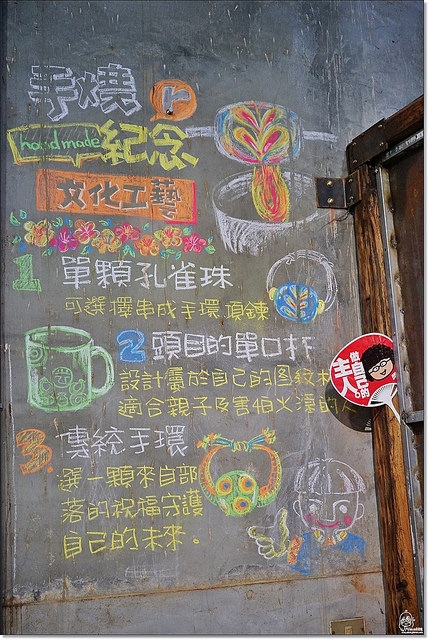 手燒
handmade 紀念
文化工藝
1 單顆孔雀珠
可選擇串成手環項鍊
2 頭目的單口杯
設計屬於自己的圖紋杯
適合親子及害怕火燙的人
3. 傳統手環
選一顆來自部
落的祝福守護
自己的未來。
做自己的
主人。